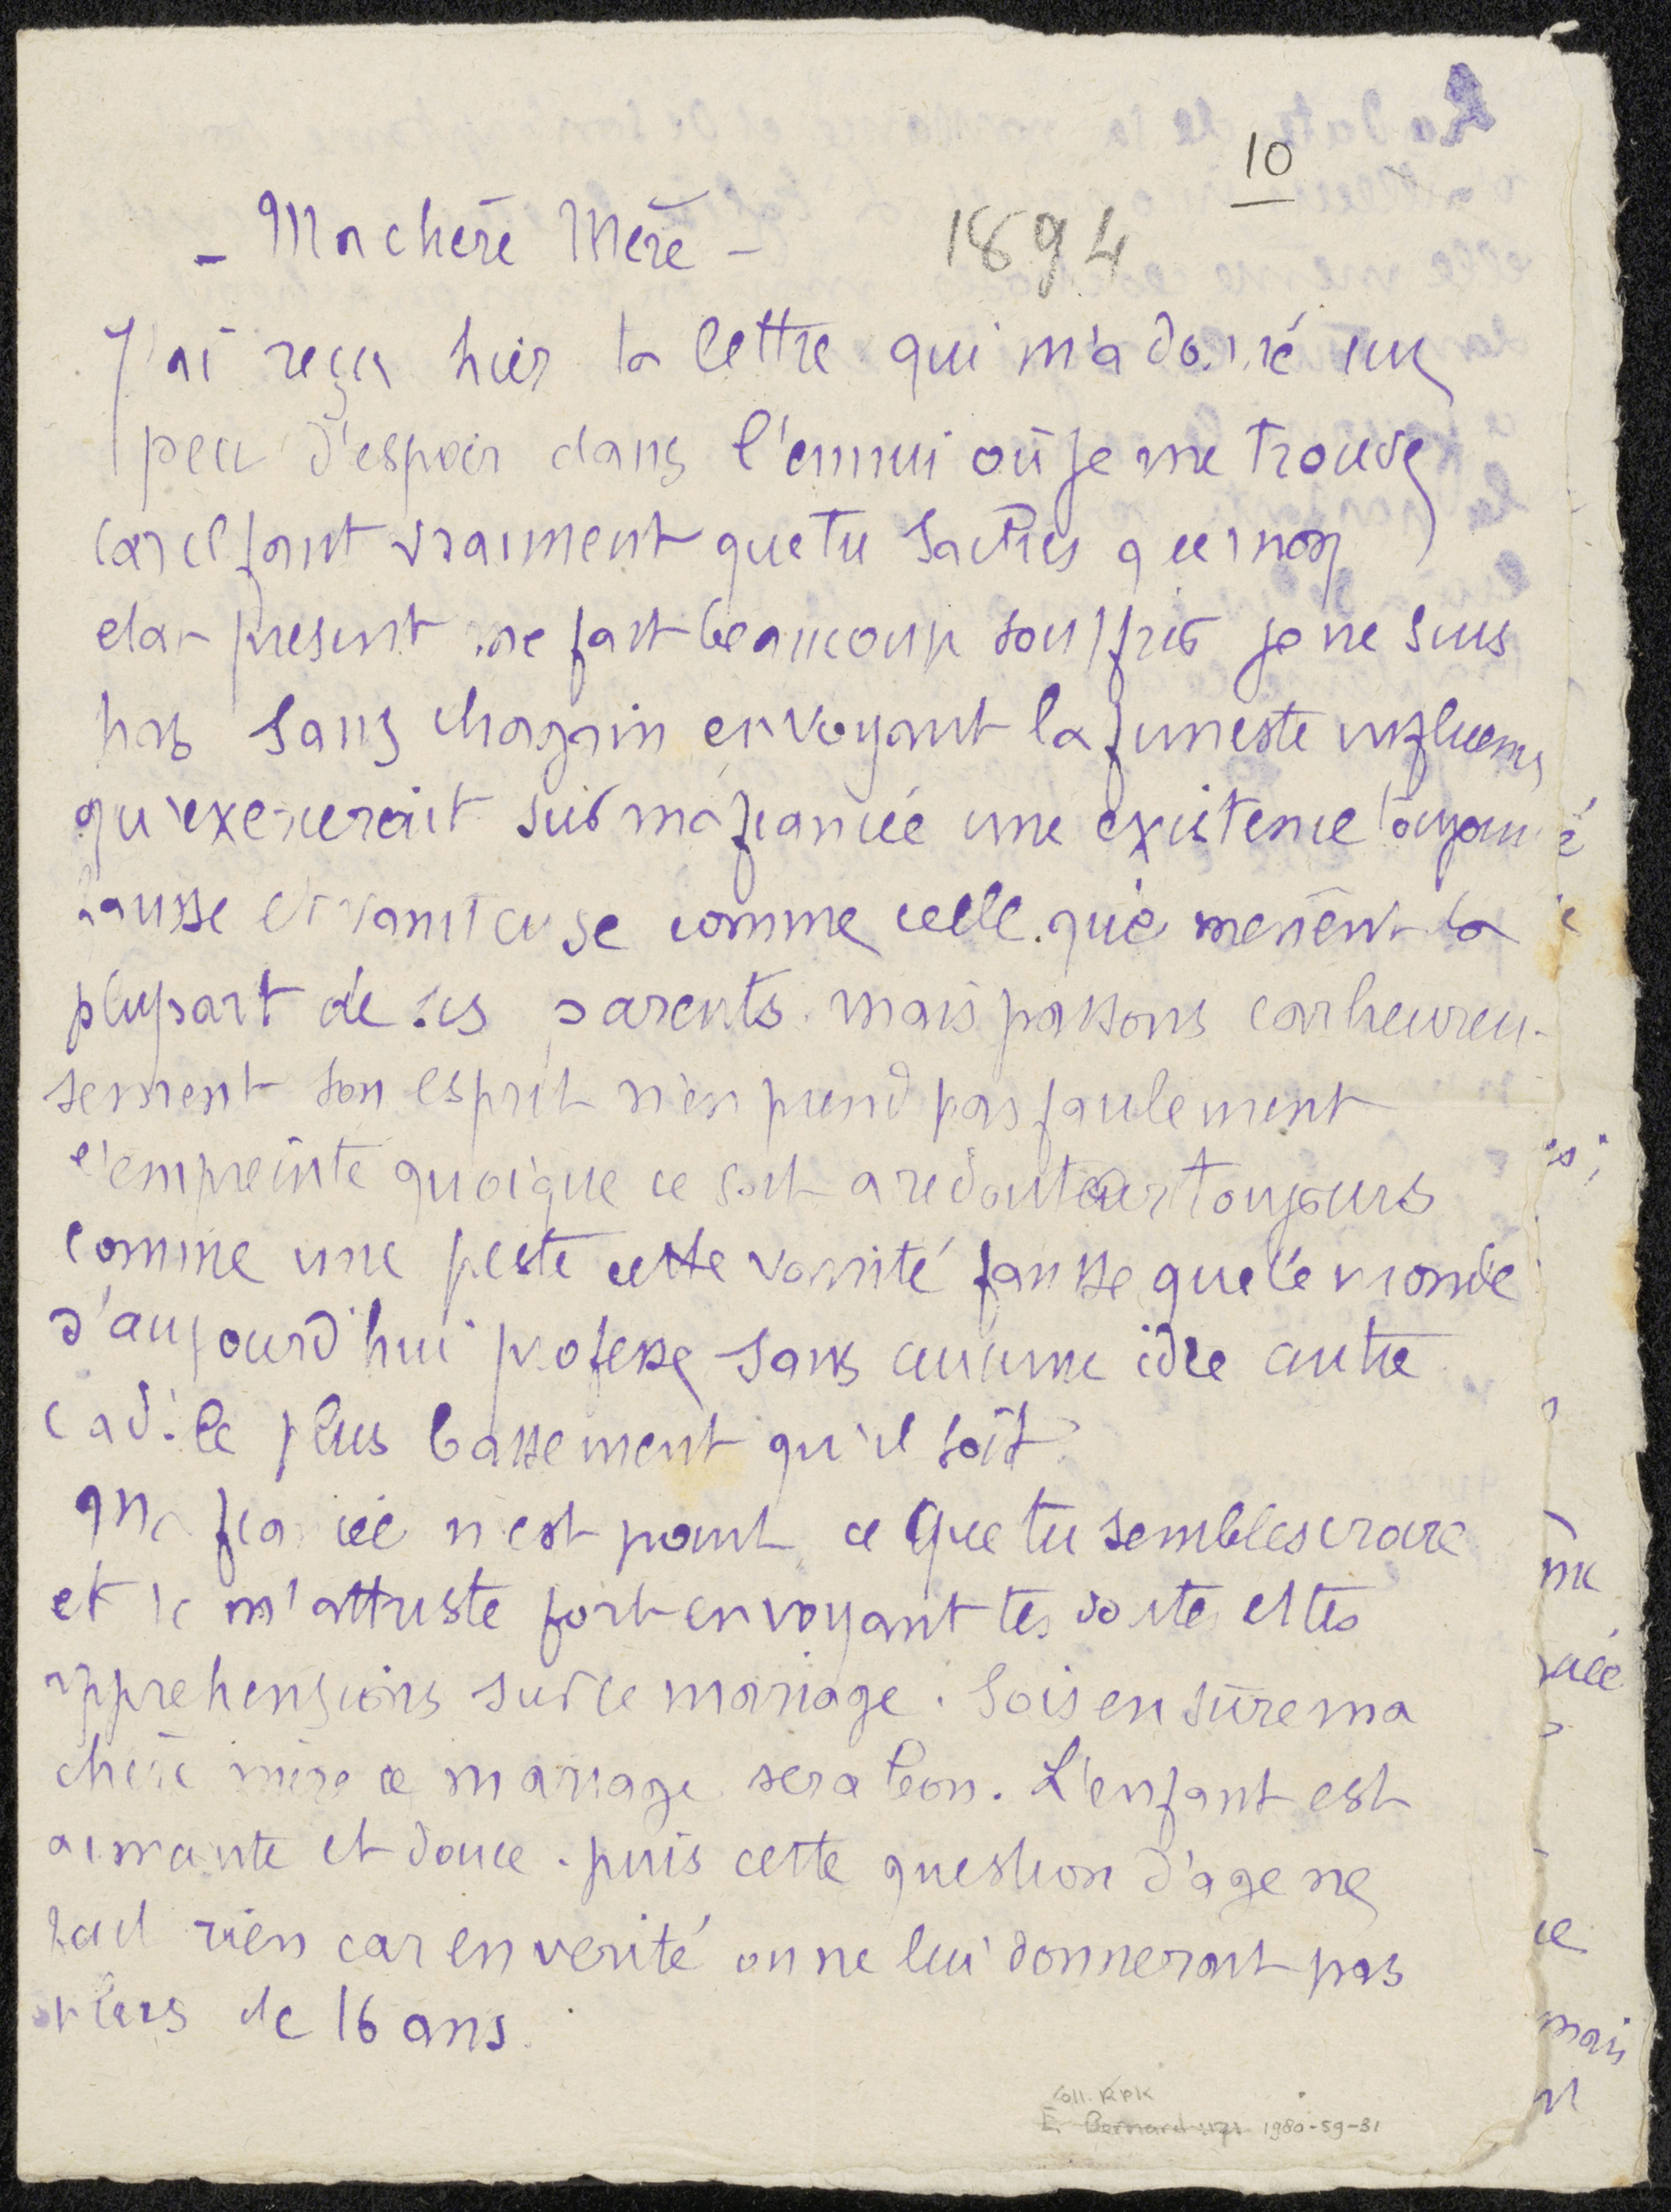 10
1894
- Ma chère Mère -
J'ai reçu hier ta lettre qui m'a donné un
peu d'espoir dans l'ennui où je me trouve
car il faut vraiment que tu saches que mon
etat present me fait beaucoup souffrir je ne suis
pas sans chagrin en voyant la funeste influence
qu'exercerait sur ma fiancée une existence
fausse et vaniteuse comme celle que mènent la
plupart de ses parents. mais passons car heureu-
sement son esprit n'en prend pas
l'empreinte quoique ce soit a redouter toujours
comme une peste cette vanité fausse que le monde
d'aujourd'hui professe sans aucune idee autre
c a d. le plus bassement qu'il soit.
Ma fiancée n'est point ce que tu sembles croire
et je m'attriste fort en voyant tes doute et tes
apprehensions sur ce mariage. Sois en sûre ma
chère mère ce mariage sera bon. L'enfant est
aimante et douce. puis cette question d'age ne
fait rien car en verité on ne lui donnerait pas
plus de 16 ans.
ne
ce
mais
Coll. RPK
E. Bernard 1980-59-31